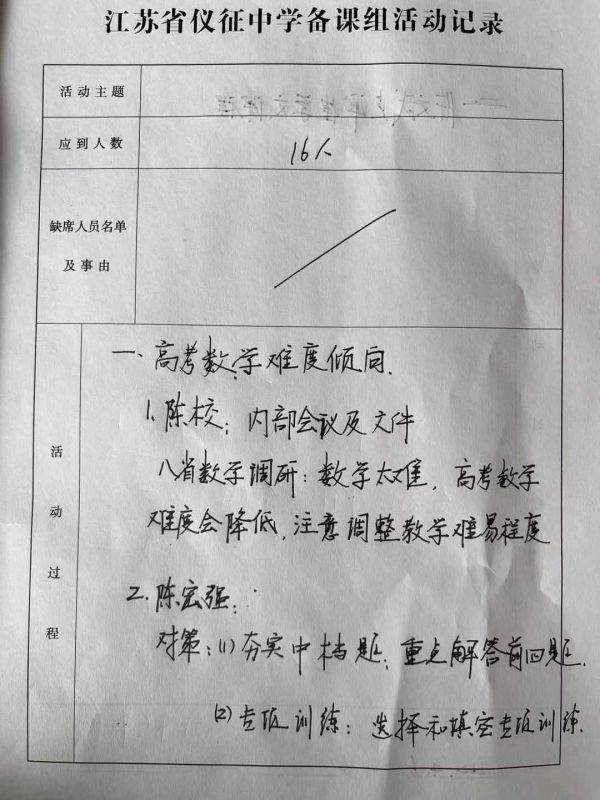 江苏省仪征中学备课组活动记录
活动主题
应到人数
16人
缺席人员名单
及事由
活动过程
一、高考数学难度倾向.
1.陈校：内部会议及文件
八省数学调研：数学太难，高考数学
难度会降低，注意调整教学难易程度
2.陈宏强：
对策：(1)夯实中档题；重点解答前四题.
(2)专项训练：选择和填空专项训练.